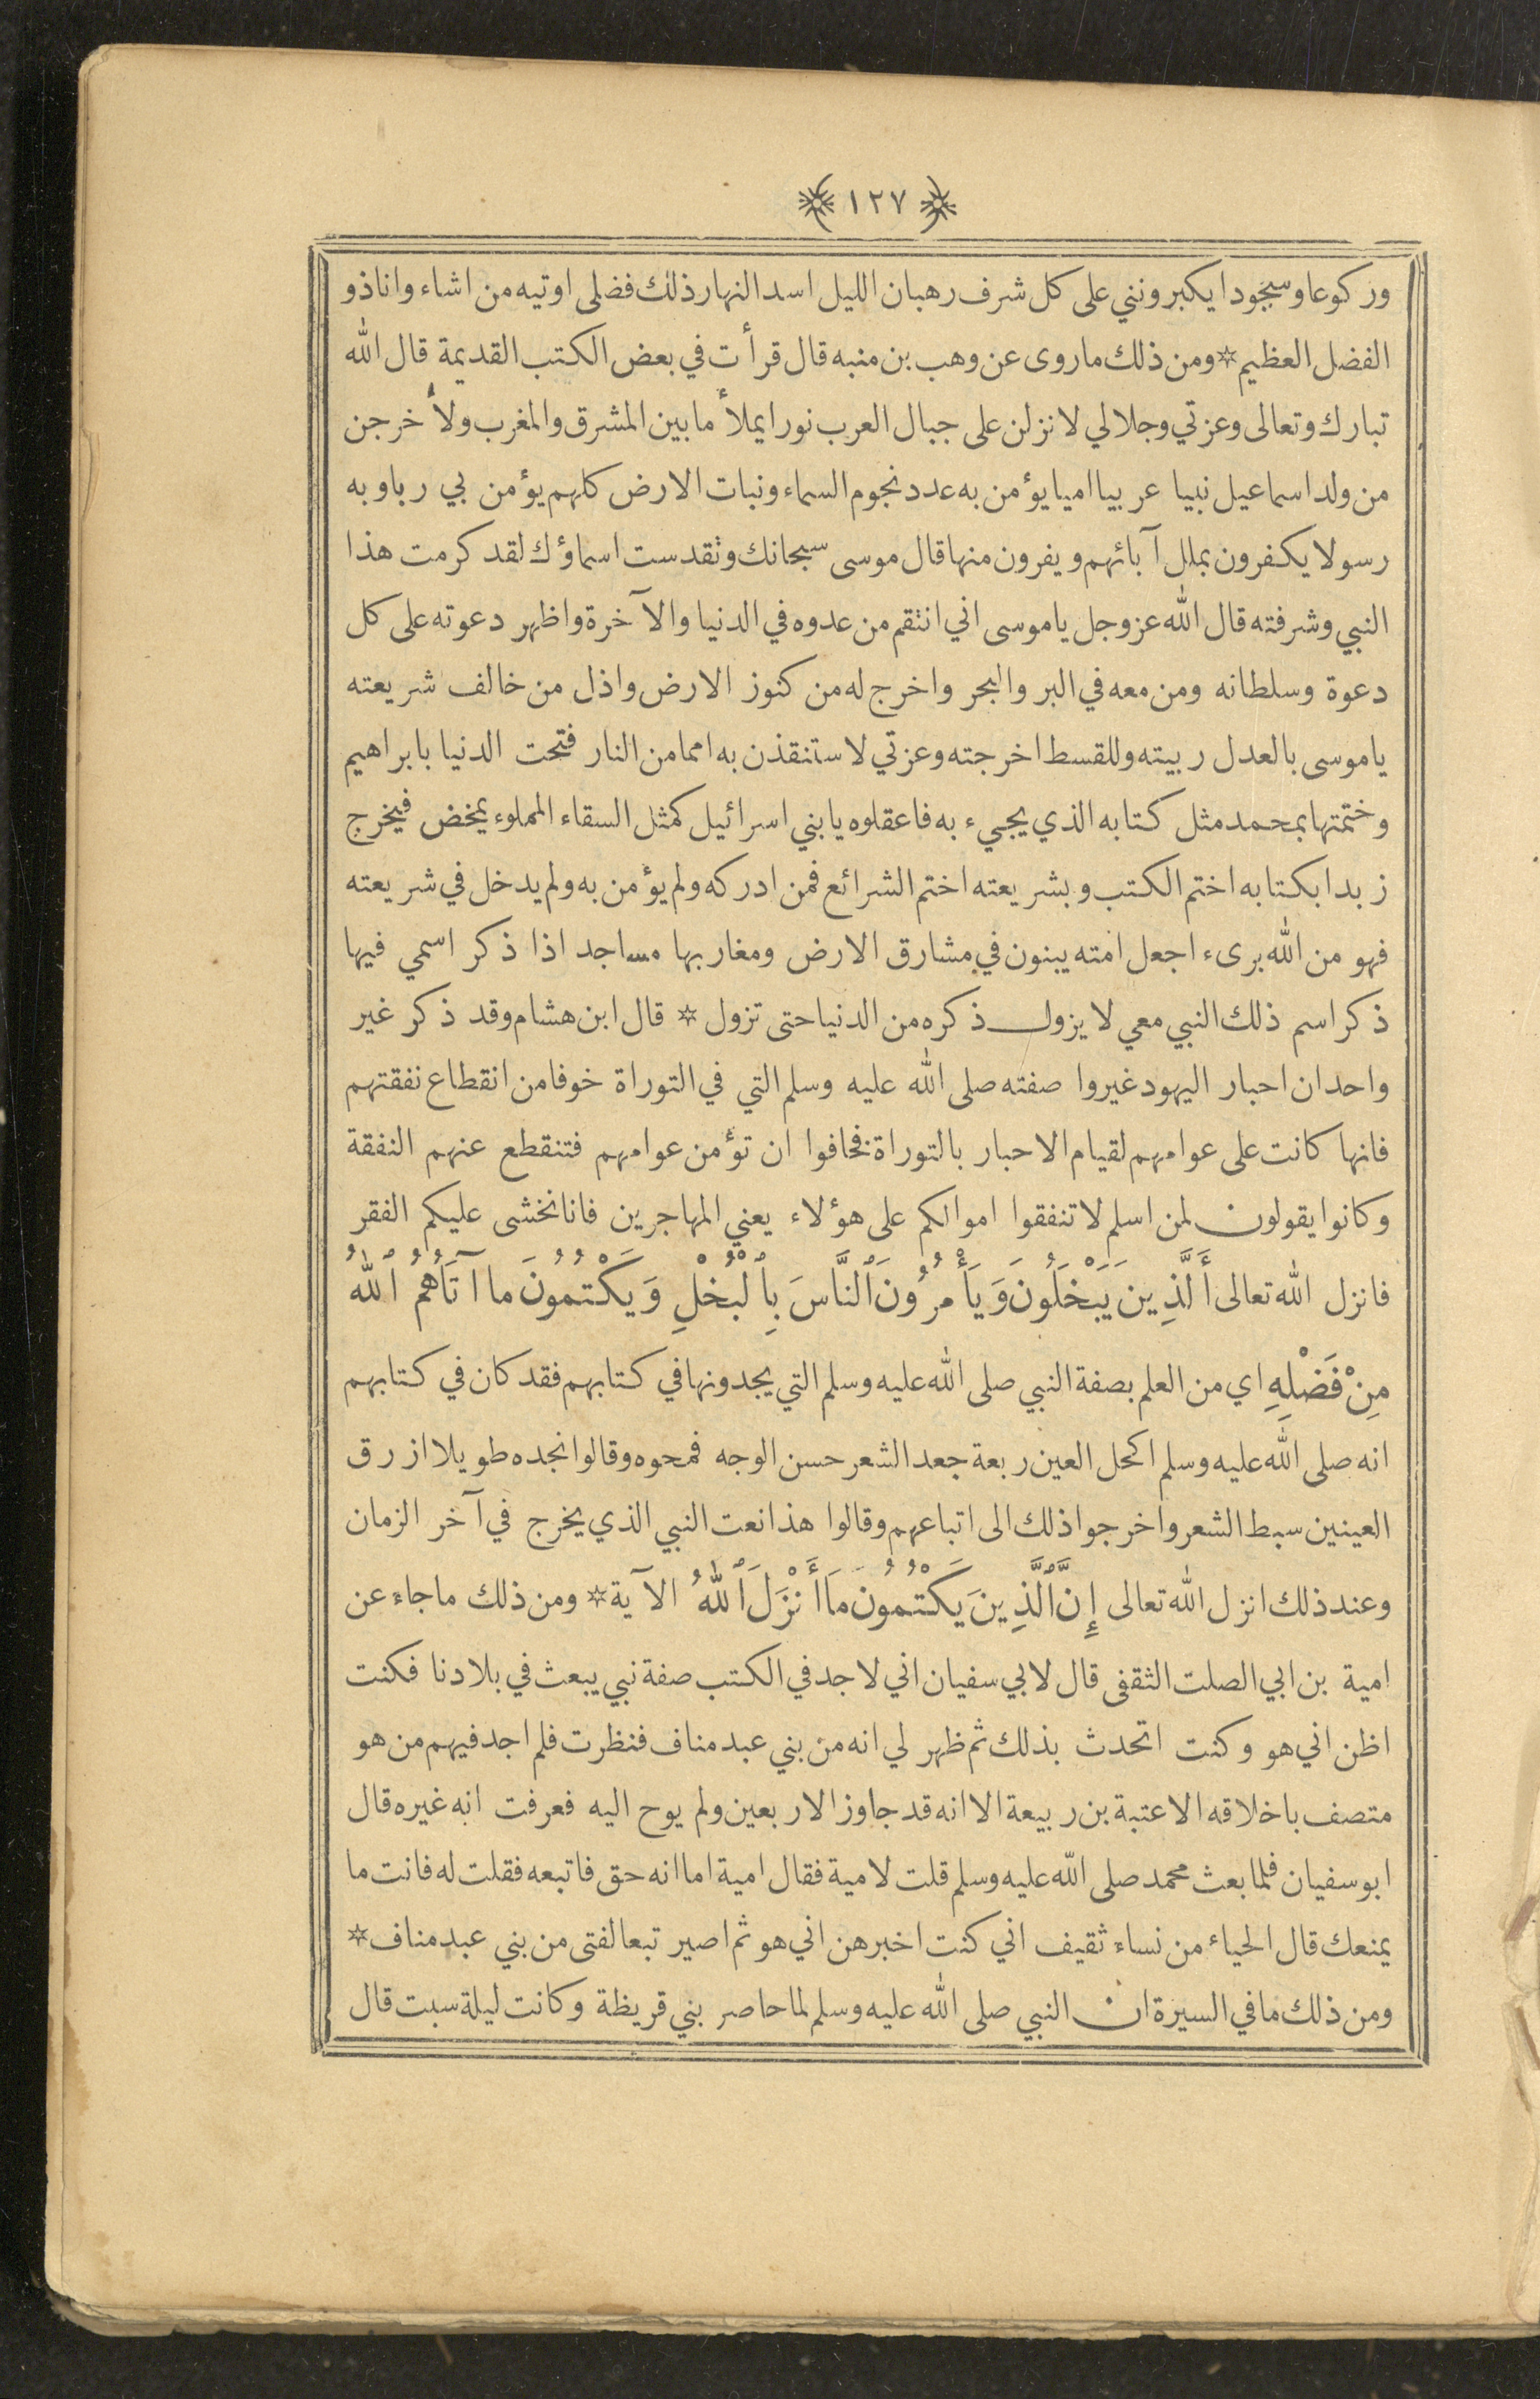 ١٢٧
وركوعا وسجودا يكبرونني على كل شرف رهبان الليل اسد النهار ذلك فضلى اوتيه من اشاء وانا ذو
الفضل العظيم * ومن ذلك ما روى عن وهب بن منبه قال قرأت في بعض الكتب القديمة قال الله
تبارك وتعالى وعزتي وجلالي لانزلن على جبال العرب نورا يملأ ما بين المشرق والمغرب ولأخرجن
من ولد اسماعيل نبيا عربيا اميا يؤمن به عدد نجوم السماء ونبات الارض كلهم يؤمن بي ربا وبه
رسولا يكفرون بملل آبائهم ويفرون منها قال موسى سبحانك وتقدست اسماؤك لقد كرمت هذا
النبي وشرفته قال الله عز وجل يا موسى اني انتقم من عدوه في الدنيا والآخرة واظهر دعوته على كل
دعوة وسلطانه ومن معه في البر والبحر واخرج له من كنوز الارض واذل من خالف شريعته
يا موسى بالعدل ربيته وللقسط اخرجته وعزتي لاستنقذن به امما من النار فتحت الدنيا بابراهيم
وختمتها بمحمد مثل كتابه الذي يجيء به فاعقلوه يا بني اسرائيل كمثل السقاء المملوء يمخض فيخرج
زبدا بكتابه اختم الكتب وبشريعته اختم الشرائع فمن ادركه ولم يؤمن به ولم يدخل في شريعته
فهو من الله برىء اجعل امته يبنون في مشارق الارض ومغاربها مساجد اذا ذكر اسمي فيها
ذكر اسم ذلك النبي معي لا يزول ذكره من الدنيا حتى تزول * قال ابن هشام وقد ذكر غير
واحد ان احبار اليهود غيروا صفته صلى الله عليه وسلم التي في التوراة خوفا من انقطاع نفقتهم
فانها كانت على عوامهم لقيام الاحبار بالتوراة فخافوا ان تؤمن عوامهم فتنقطع عنهم النفقة
وكانوا يقولون لمن اسلم لا تنفقوا اموالكم على هؤلاء يعني المهاجرين فانا نخشى عليكم الفقر
فانزل الله تعالى أَلَّذِينَ يَبْخَلُونَ وَيَأْمُرُونَ ٱلنَّاسَ بِٱلْبُخْلِ وَيَكْتُمُونَ مَا آتَاهُمُ ٱللهُ
مِنْ فَضْلِهِ اي من العلم بصفة النبي صلى الله عليه وسلم التي يجدونها في كتابهم فقد كان في كتابهم
انه صلى الله عليه وسلم اكحل العين ربعة جعد الشعر حسن الوجه فمحوه وقالوا نجده طويلا ازرق
العينين سبط الشعر واخرجوا ذلك الى اتباعهم وقالوا هذا نعت النبي الذي يخرج في آخر الزمان
وعند ذلك انزل الله تعالى إِنَّ ٱلَّذِينَ يَكْتُمُونَ مَا أَنْزَلَ ٱللهُ الآية * ومن ذلك ما جاء عن
امية بن ابي الصلت الثقفى قال لابي سفيان اني لاجد في الكتب صفة نبي يبعث في بلادنا فكنت
اظن اني هو وكنت اتحدث بذلك ثم ظهر لي انه من بني عبد مناف فنظرت فلم اجد فيهم من هو
متصف باخلاقه الا عتبة بن ربيعة الا انه قد جاوز الاربعين ولم يوح اليه فعرفت انه غيره قال
ابو سفيان فلما بعث محمد صلى الله عليه وسلم قلت لامية فقال امية اما انه حق فاتبعه فقلت له فانت ما
يمنعك قال الحياء من نساء ثقيف اني كنت اخبرهن اني هو ثم اصير تبعا لفتى من بني عبد مناف *
ومن ذلك ما في السيرة ان النبي صلى الله عليه وسلم لما حاصر بني قريظة وكانت ليلة سبت قال